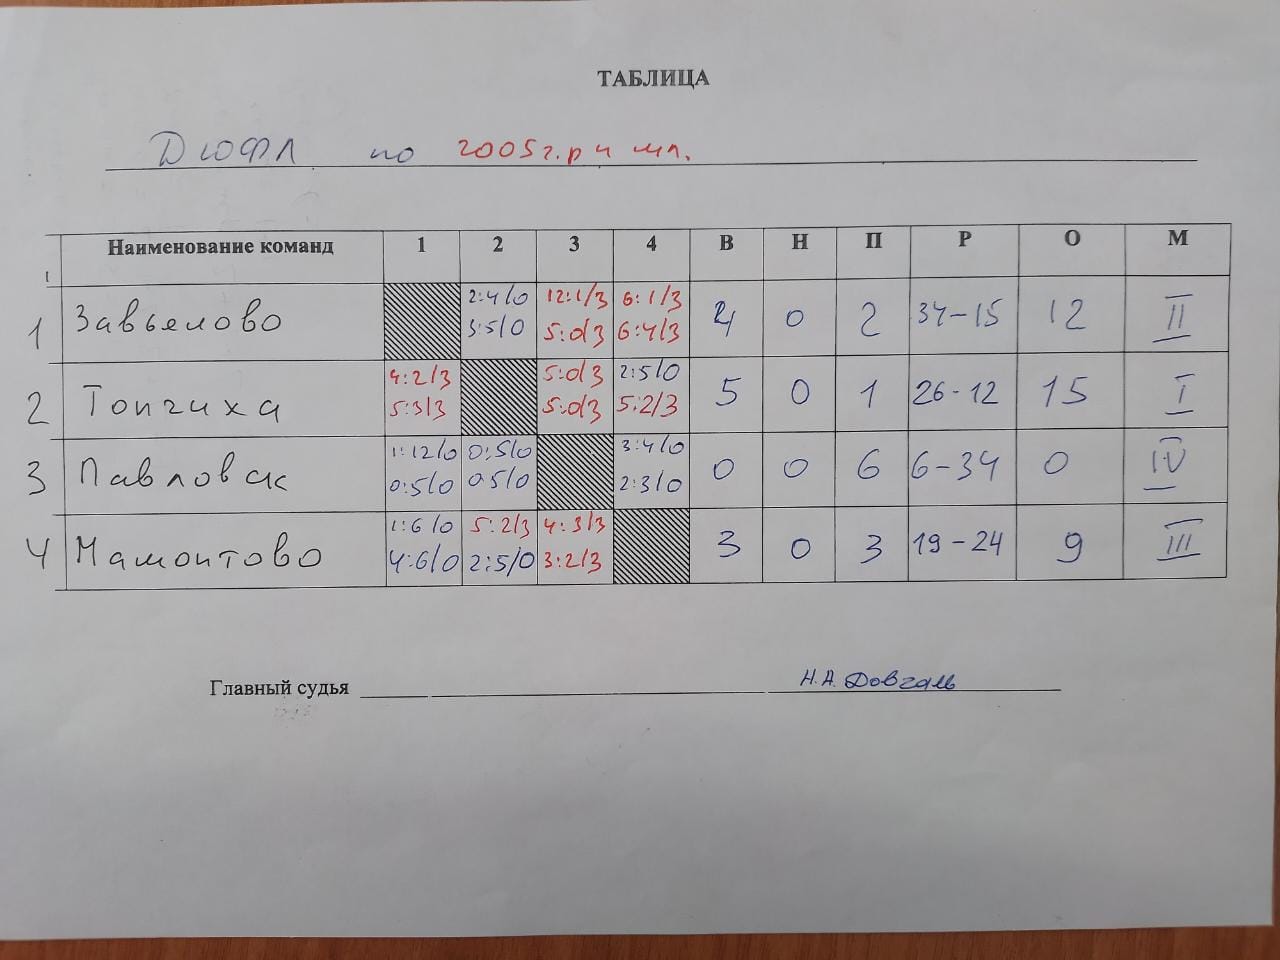 ТАБЛИЦА
ДЮФЛ по 2005г.р и мл.
Наименование команд 1 2 3 4 В Н П Р О М
1 Завьялово 2:4/0 12:1/3 6:1/3 4 0 2 34-15 12 II
3:5/0 5:0/3 6:4/3
2 Топчиха 4:2/3 5:0/3 2:5/0 5 0 1 26-12 15 I
5:3/3 5:0/3 5:2/3
3 Павловск 1:12/0 0:5/0 3:4/0 0 0 6 6-34 0 IV
0:5/0 0:5/0 2:3/0
4 Мамонтово 1:6/0 5:2/3 4:3/3 3 0 3 19-24 9 III
4:6/0 2:5/0 3:2/3
Главный судья Н.А. Довгаль